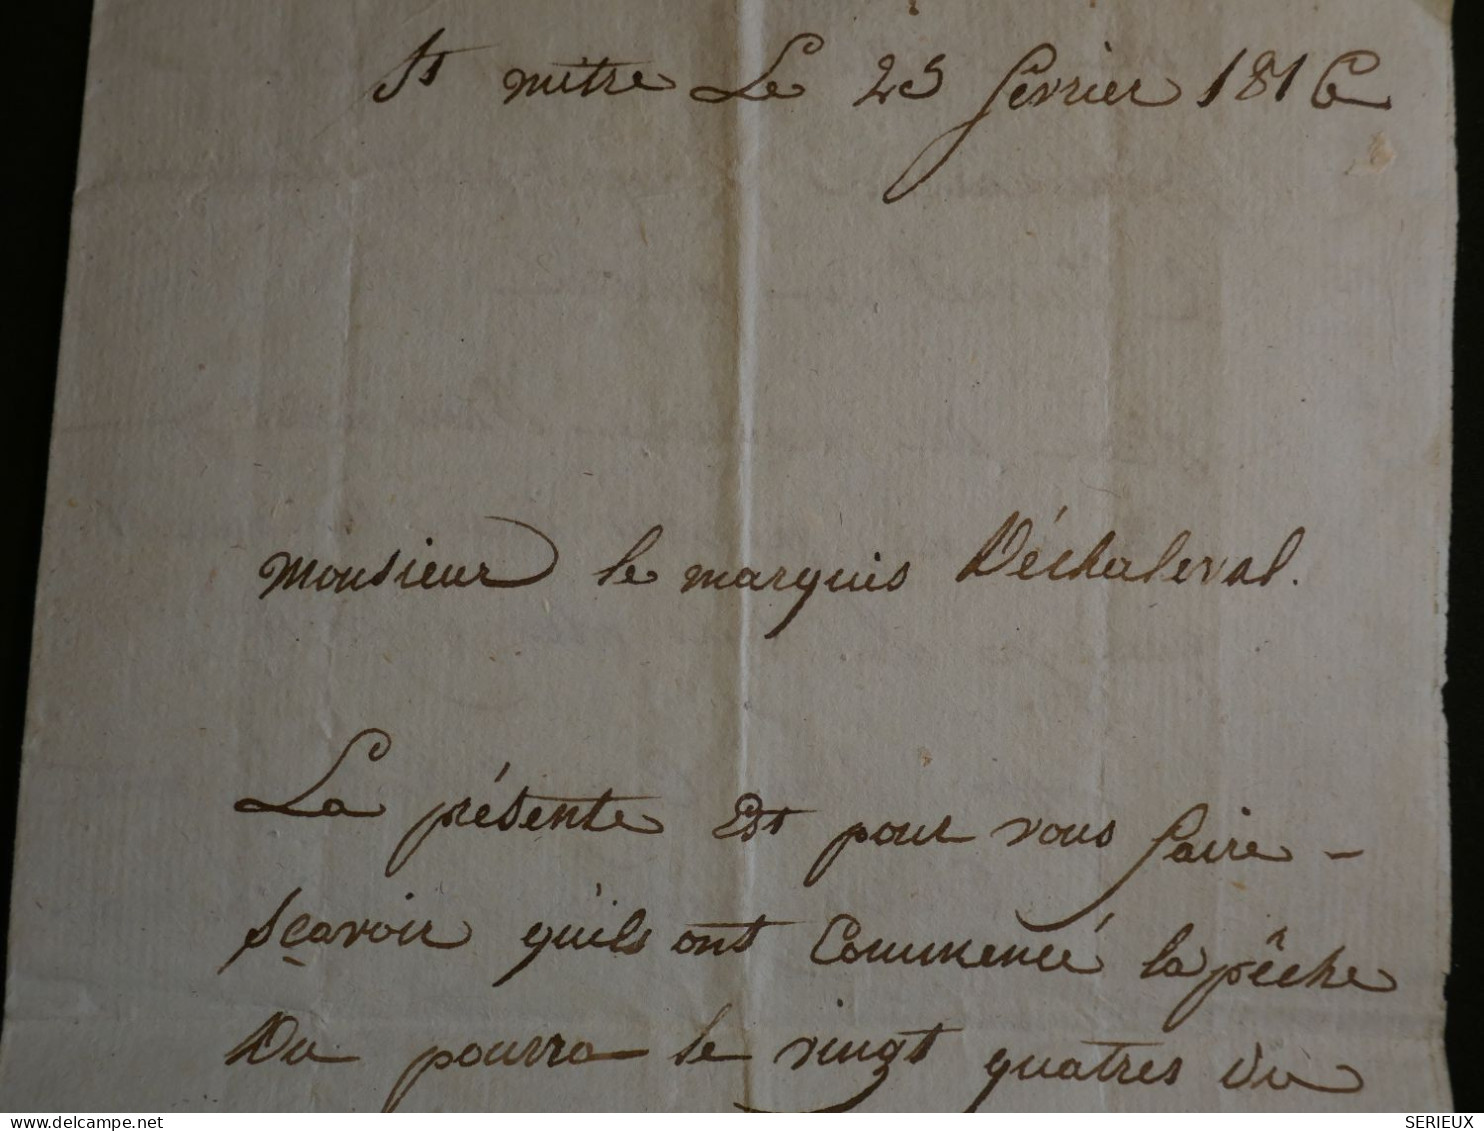 St mitre Le 25 février 1816
monsieur le marquis Déchaleval.
La présente Est pour vous faire -
sçavoir qu'ils ont Commencé la pêche
Du pourra le vingt quatres du
SERIEUX